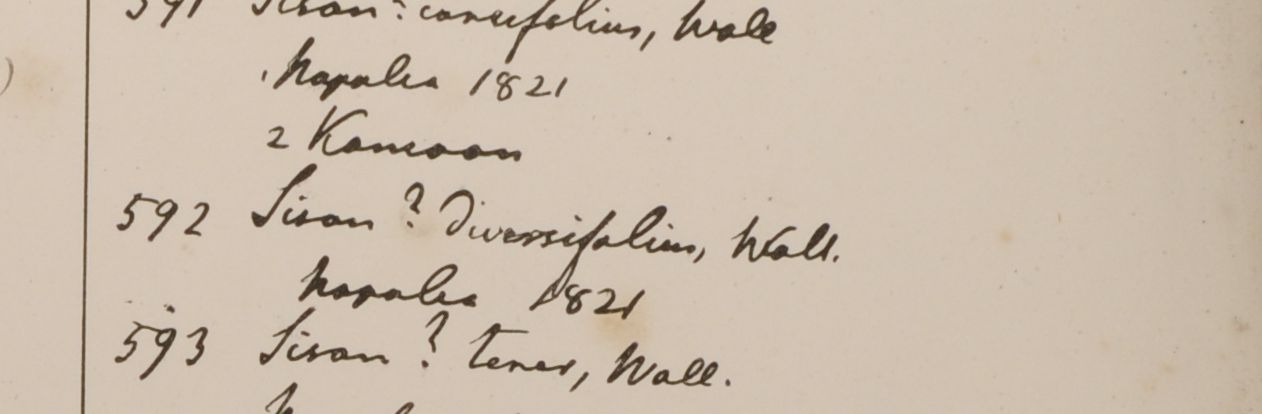 591 Sison? coniifolium, Wall
1 Napalia 1821
2 Kamaon
592 Sison? diversifolium, Wall.
Napalia 1821
593 Sison? tener, Wall.